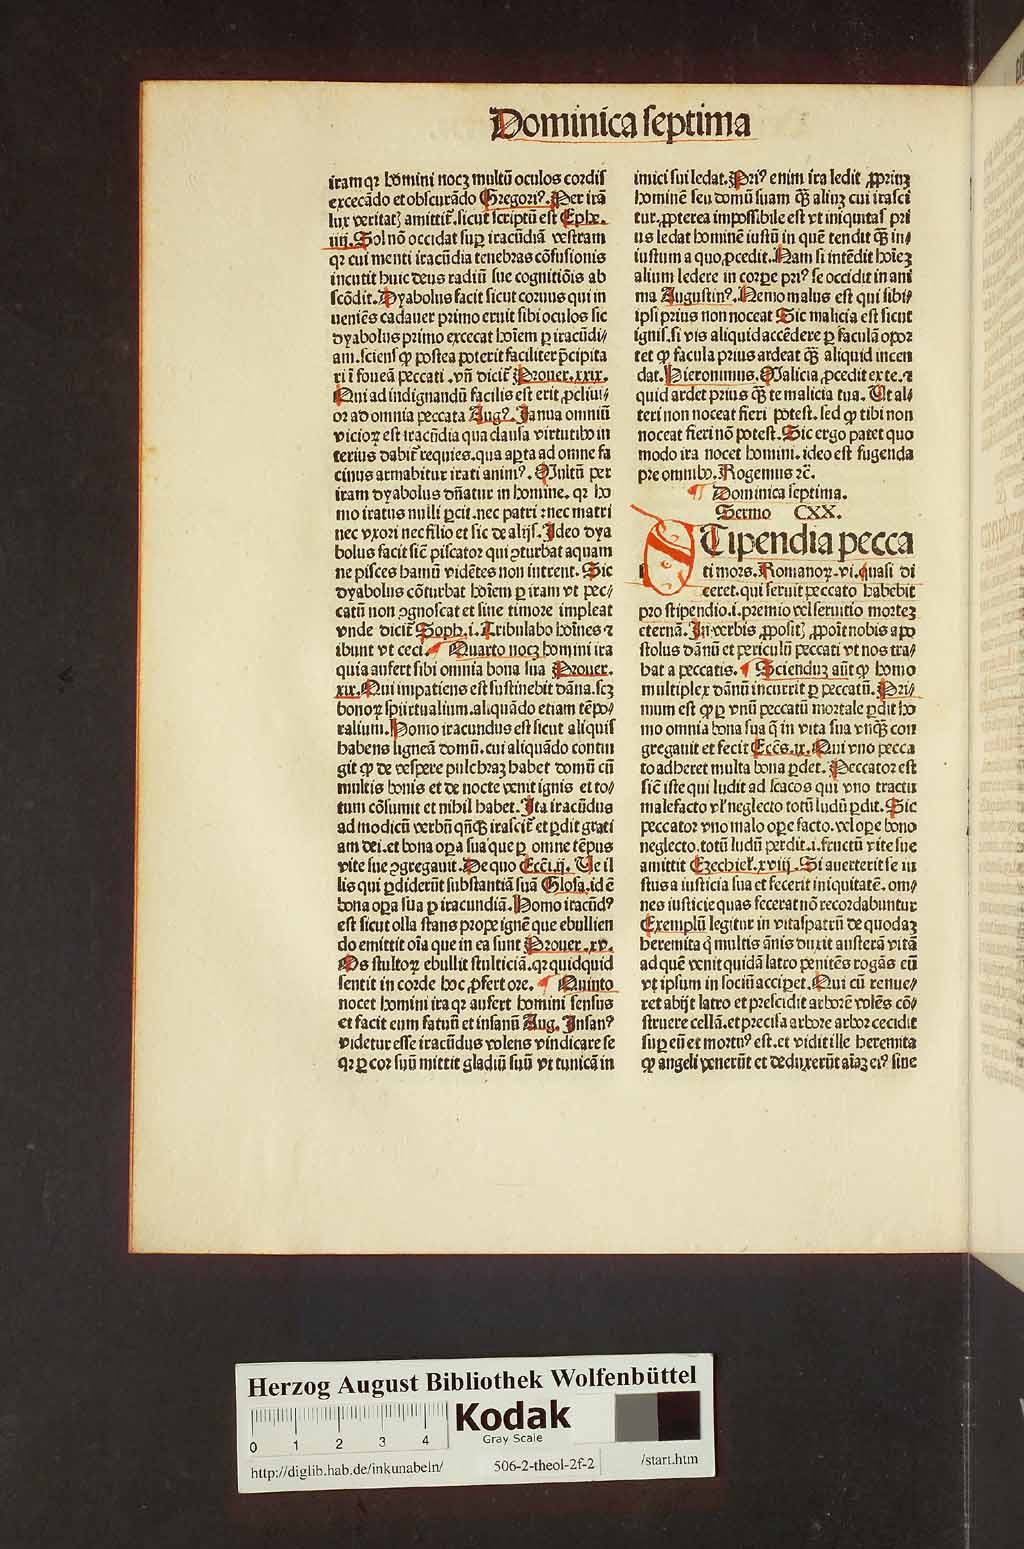 Dominica septima
iram qꝛ homini nocꝫ multū oculos cordis
excecādo et obscurādo Gregori⁹. Per irā
lux veritatꝭ amittit̄. sicut scriptū est Ephe.
iiij. Sol nō occidat suꝑ iracūdiā vestram
qꝛ cui menti iracūdia tenebras cōfusionis
incutit huic deus radiū sue cognitiōis ab
scōdit. Dyabolus facit sicut coruus qui in
ueniēs cadauer primo eruit sibi oculos sic
dyabolus primo excecat hoīem ꝑ iracūdi⸗
am. sciens ꝙ postea poterit faciliter p̄cipita
ri ī foueā peccati. vn̄ dicit̄ Prouer. xxix.
Qui ad indignandū facilis est erit ꝓcliui⸗
or ad omnia peccata Aug⁹. Janua omniū
vicioꝝ est iracūdia qua clausa virtutibꝰ in
terius dabit̄ requies. qua aꝑta ad omne fa
cinus armabitur irati anim⁹. Multū per
iram dyabolus dn̄atur in homine. qꝛ ho
mo iratus nulli ꝑcit. nec patri: nec matri
nec vxori nec filio et sic de alijs. Ideo dya
bolus facit siē piscator qui ꝯturbat aquam
ne pisces hamū vidētes non intrent. Sic
dyabolus cōturbat hoīem ꝑ iram vt pec⸗
catū non ꝯgnoscat et sine timore impleat
vnde dicit̄ Soph. i. Tribulabo hoīnes ⁊
ibunt vt ceci. ¶ Quarto nocꝫ homini ira
quia aufert sibi omnia bona sua Prouer.
xix. Qui impatiens est sustinebit dāna. scꝫ
bonoꝝ spiritualium. aliquādo etiam tēpo⸗
ralium. Homo iracundus est sicut aliquis
habens ligneā domū. cui aliquādo contin
git ꝙ de vespere pulchraꝫ habet domū cū
multis bonis et de nocte venit ignis et to⸗
tum cōsumit et nihil habet. Ita iracūdus
ad modicū verbū qn̄qꝫ irascit̄ et ꝑdit grati
am dei. et bona oꝑa sua que ꝑ omne tēpus
vite sue ꝯgregauit. De quo Ecc̄i. ij. Ve il
lis qui ꝑdiderūt substantiā suā Glosa. id ē
bona oꝑa sua ꝑ iracundiā. Homo iracūd⁹
est sicut olla stans prope ignē que ebullien
do emittit oīa que in ea sunt Prouer. xv.
Os stultoꝝ ebullit stulticiā. qꝛ quidquid
sentit in corde hoc ꝓfert ore. ¶ Quinto
nocet homini ira qꝛ aufert homini sensus
et facit eum fatuū et insanū Aug. Insan⁹
videtur esse iracūdus volens vindicare se
qꝛ ꝑ cor suū mittit gladiū suū vt tunicā in
imici sui ledat. Pri⁹ enim ira ledit ꝓpriuꝫ
hominē seu domū suam qꝫ̄ aliuꝫ cui irasci
tur. ꝓpterea impossibile est vt iniquitas pri
us ledat hominē iustū in quē tendit qꝫ̄ in⸗
iustum a quo ꝓcedit. Nam si intēdit hoīeꝫ
alium ledere in corpe pri⁹ se occidit in ani
ma Augustin⁹. Nemo malus est qui sibi⸗
ipsi prius non noceat Sic malicia est sicut
ignis. si vis aliquid accēdere ꝑ faculā opor
tet ꝙ facula prius ardeat qꝫ̄ aliquid incen
dat. Hieronimus. Malicia ꝓcedit ex te. ⁊
quid ardet prius qꝫ̄ te malicia tua. Ut al⸗
teri non noceat fieri potest. sed ꝙ tibi non
noceat fieri nō potest. Sic ergo patet quo
modo ira nocet homini. ideo est fugenda
pre omnibꝰ. Rogemus ⁊c̄.
¶ Dominica septima.
Sermo CXX.
STipendia pecca
ti mors. Romanoꝝ. vi. quasi di
ceret. qui seruit peccato habebit
pro stipendio. i. premio vel seruitio morteꝫ
eternā. In verbis ꝓpositꝭ ꝓpoīt nobis apo
stolus dānū et periculū peccati vt nos tra⸗
hat a peccatis. ¶ Scienduꝫ aūt ꝙ homo
multiplex dānū incurrit ꝑ peccatū. Pri⸗
mum est ꝙ ꝑ vnū peccatū mortale ꝑdit ho
mo omnia bona sua q̄ in vita sua vnqꝫ̄ con
gregauit et fecit Ecc̄s. ix. Qui vno pecca
to adheret multa bona ꝑdet. Peccator est
siē iste qui ludit ad scacos qui vno tractu
malefacto vl̓ neglecto totū ludū ꝑdit. Sic
peccator vno malo oꝑe facto. vel oꝑe bono
neglecto. totū ludū perdit. i. fructū vite sue
amittit Ezechiel̓. xviij. Si auerterit se iu
stus a iusticia sua et fecerit iniquitatē. om⸗
nes iusticie quas fecerat nō recordabuntur
Exemplū legitur in vitaspatrū de quodaꝫ
heremita q̄ multis ānis duxit austerā vitā
ad quē venit quidā latro penitēs rogās eū
vt ipsum in sociū acciꝑet. Qui cū renue⸗
ret abijt latro et prescidit arborē volēs cō⸗
struere cellā. et precisa arbore arbor cecidit
suꝑ eū et mortu⁹ est. et vidit ille heremita
ꝙ angeli venerūt et deduxerūt aīaꝫ ei⁹ sine
Herzog August Bibliothek Wolfenbüttel
Kodak
Gray Scale
0 1 2 3 4
http://diglib.hab.de/inkunabeln/ 506-2-theol-2f-2 /start.htm